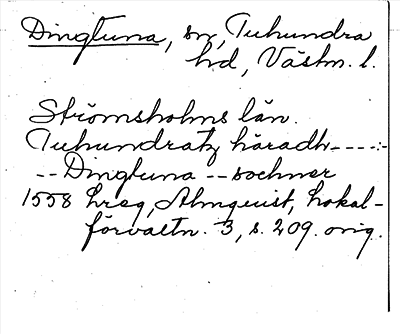 Dingtuna, sn, Tuhundra
hd, Västm. l.
Strömsholms län.
Tuhundratz häradh----:-
--Dingtuna --sochner
1558 hrsg, Almquist, Lokal-
förvaltn. 3, s. 209. orig.